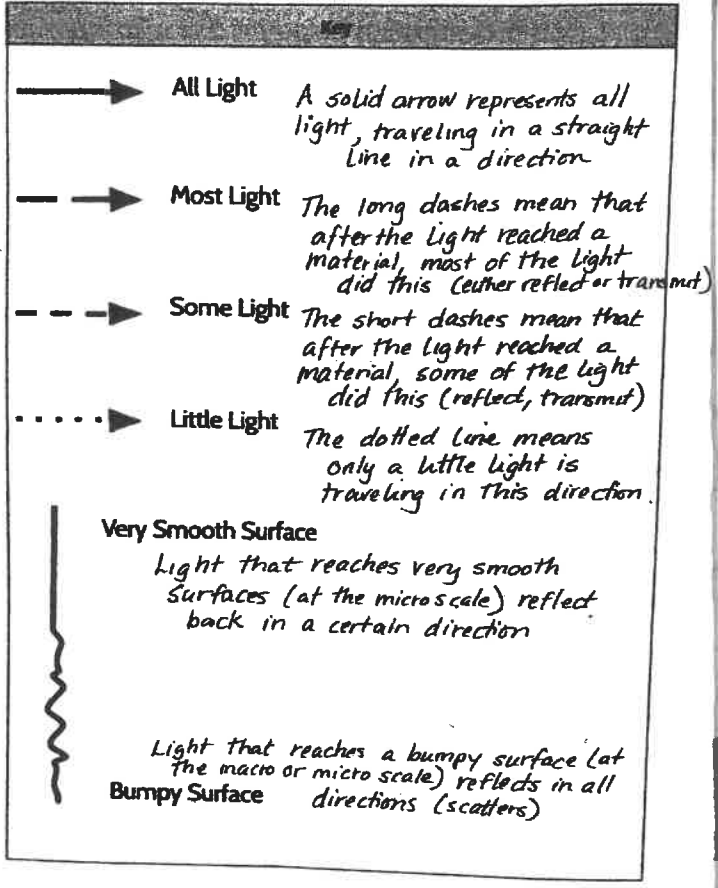 Key
All Light
A solid arrow represents all
light, traveling in a straight
line in a direction
Most Light
The long dashes mean that
after the light reached a
material, most of the light
did this (either reflect or transmit)
Some Light
The short dashes mean that
after the light reached a
material, some of the light
did this (reflect, transmit)
Little Light
The dotted line means
only a little light is
traveling in this direction.
Very Smooth Surface
Light that reaches very smooth
surfaces (at the microscale) reflect
back in a certain direction
Light that reaches a bumpy surface (at
the macro or micro scale) reflects in all
Bumpy Surface directions (scatters)